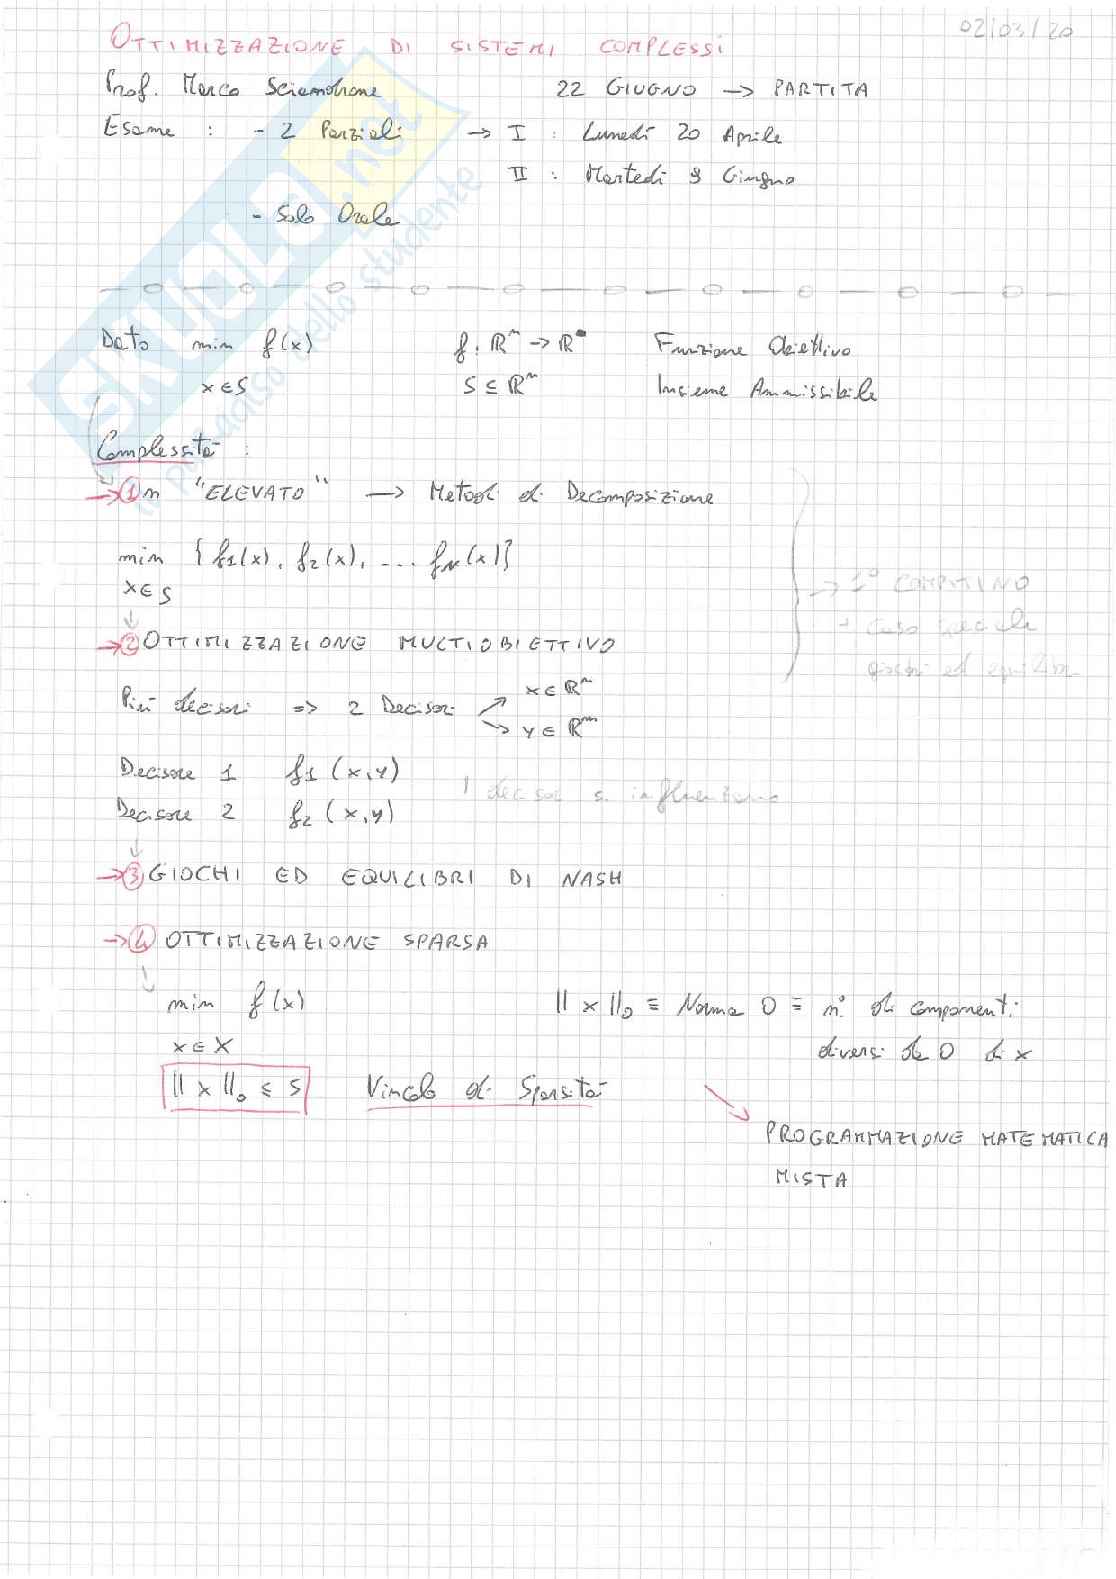 02/03/20
OTTIMIZZAZIONE DI SISTEMI COMPLESSI
Prof. Marco Sciandrone 22 GIUGNO → PARTITA
Esame : - 2 Parziali → I : Lunedì 20 Aprile
II : Martedì 9 Giugno
- Solo Orale
SKUOLA.net
il paradiso dello studente
Dato min f(x) f: ℝⁿ → ℝ Funzione Obiettivo
x ∈ S S ⊆ ℝⁿ Insieme Ammissibile
Complessità :
→ ① n "ELEVATO" → Metodi di Decomposizione
min {f₁(x), f₂(x), ... f_N(x)}
x ∈ S
→ 1° COMPITINO
+ caso
giochi ed equilibri
→ ② OTTIMIZZAZIONE MULTIOBIETTIVO
Più decisori => 2 Decisori
x ∈ ℝⁿ
y ∈ ℝᵐ
Decisore 1 f₁(x,y)
I decisori si influenzano
Decisore 2 f₂(x,y)
→ ③ GIOCHI ED EQUILIBRI DI NASH
→ ④ OTTIMIZZAZIONE SPARSA
min f(x) ||x||₀ ≡ Norma 0 = n° di componenti
x ∈ X diversi da 0 di x
||x||₀ ≤ s Vincolo di Sparsità
PROGRAMMAZIONE MATEMATICA
MISTA